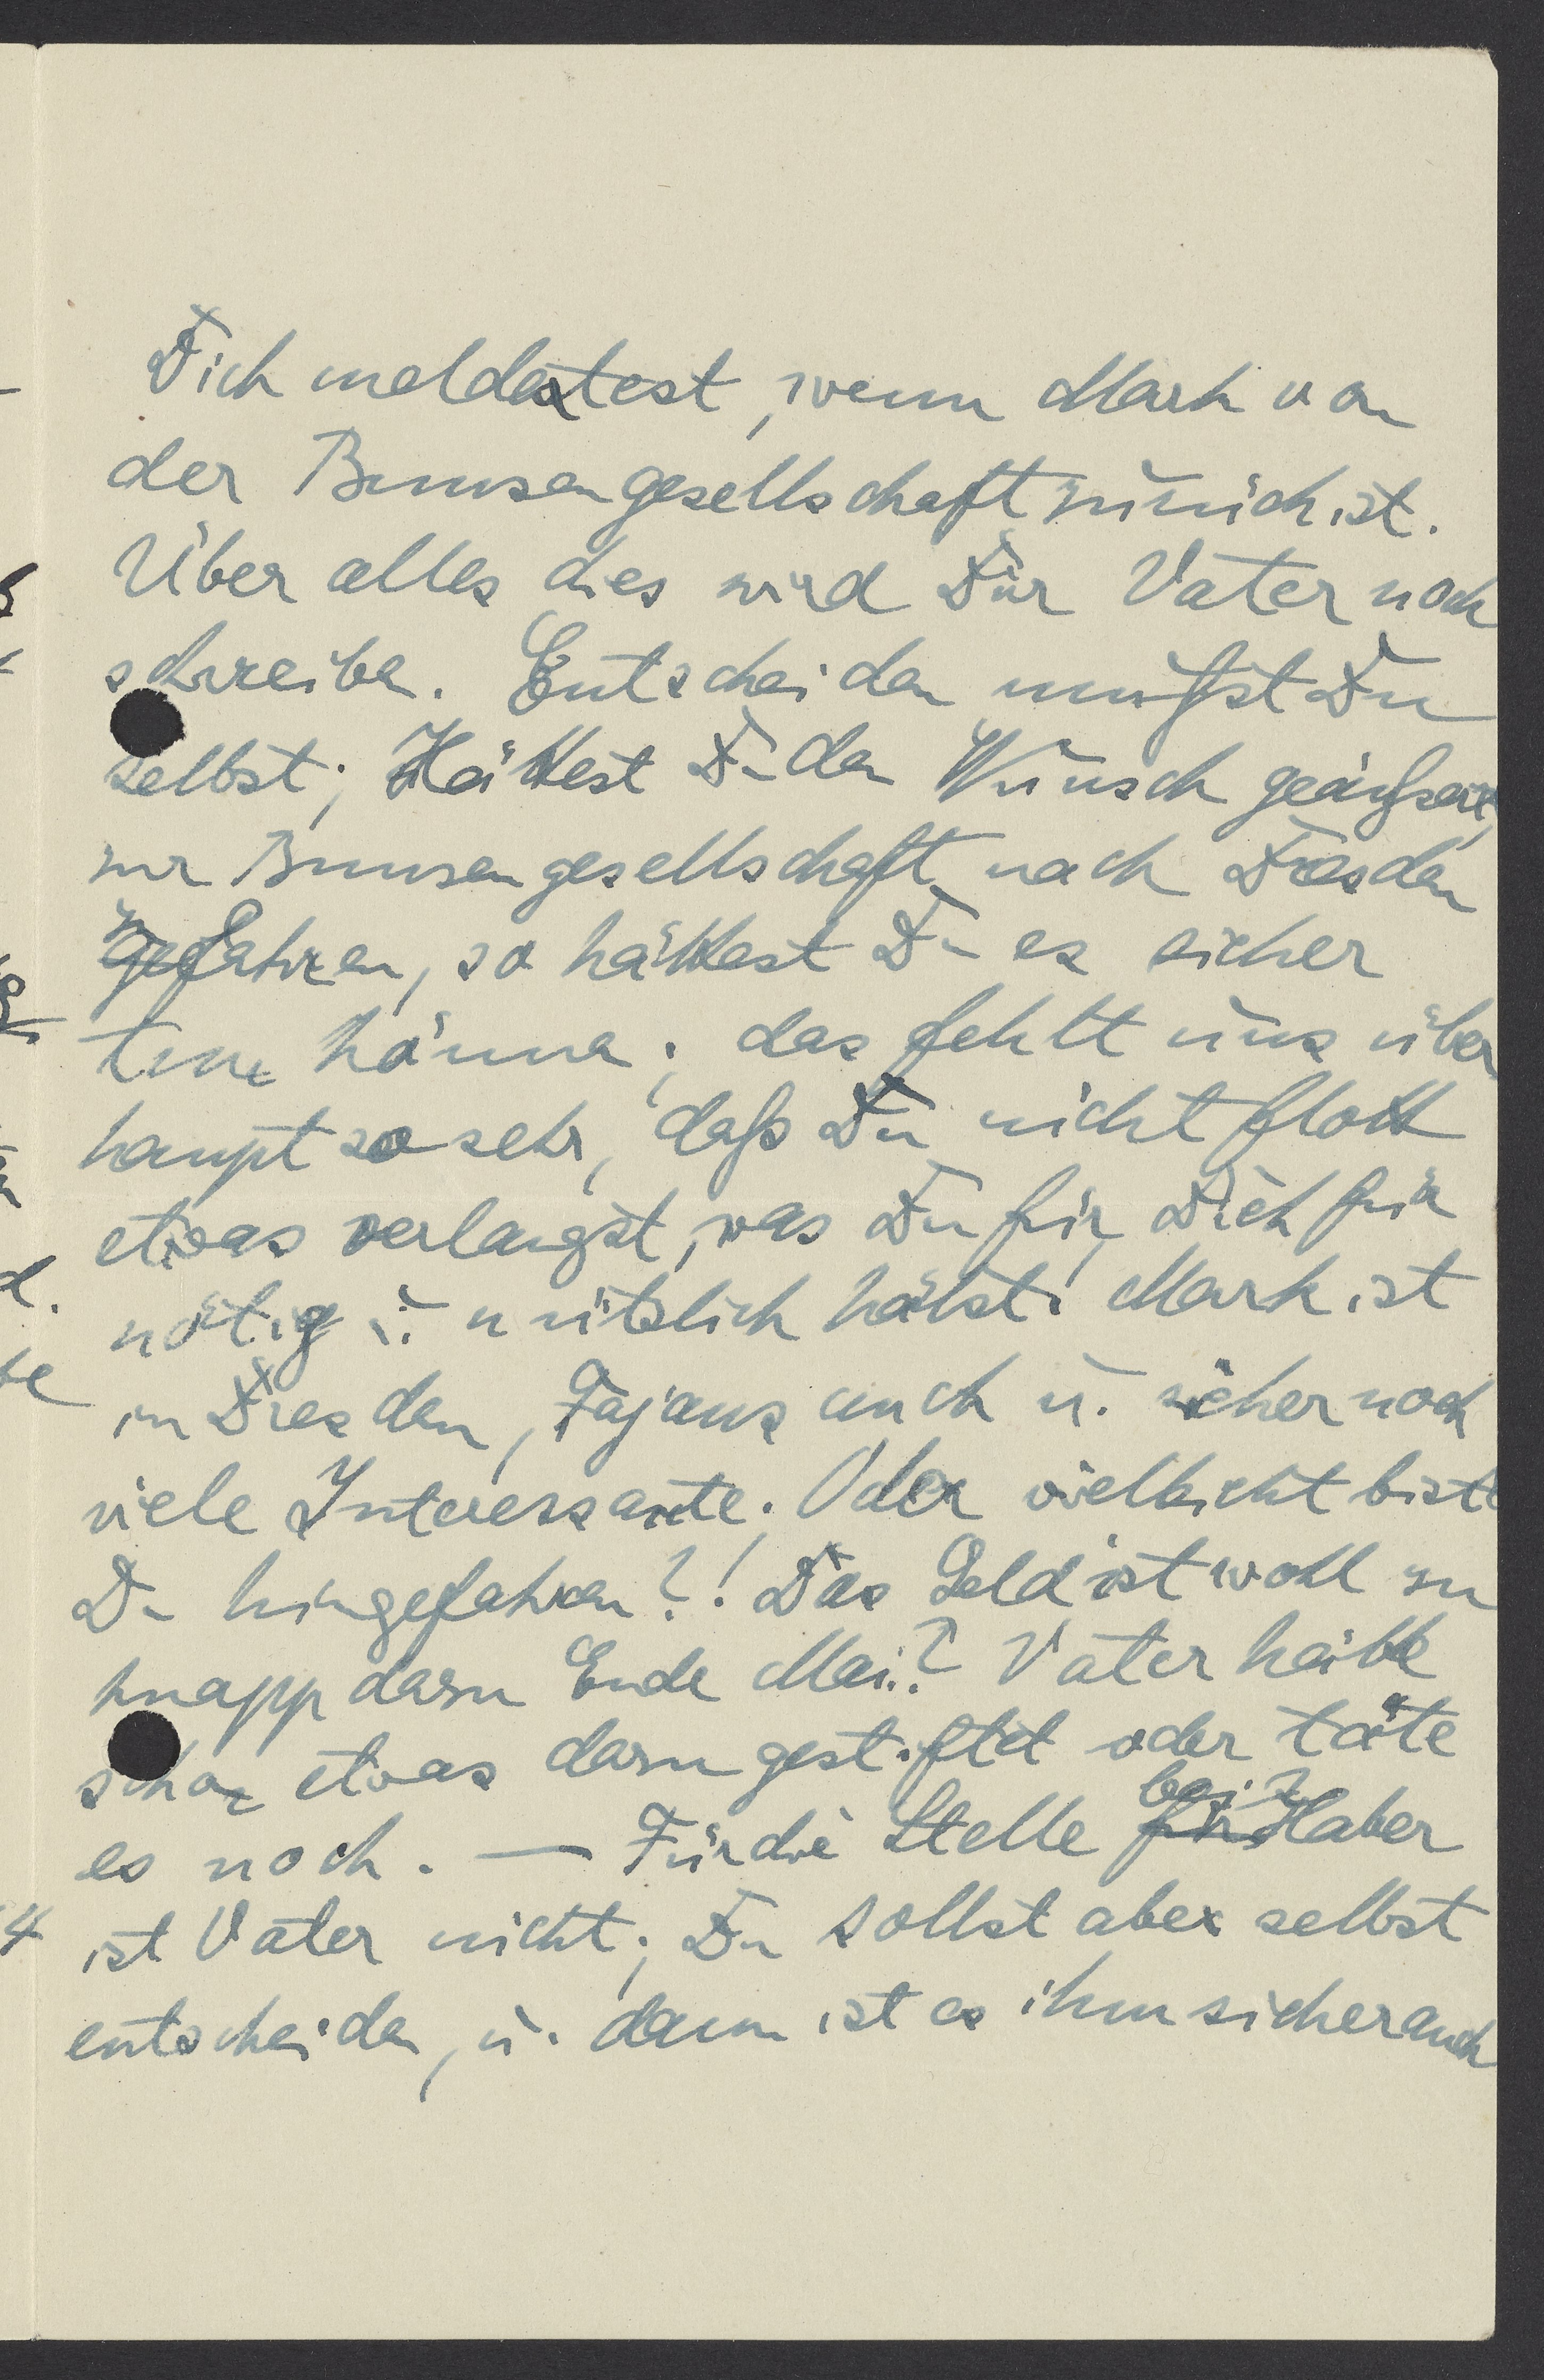 Dich meldetest, wenn Mark von
der Bunsengesellschaft zurück ist.
Über alles dies wird Dir Vater noch
schreiben. Entscheiden mußt Du
selbst; Hättest Du den Wunsch geäußert,
zur Bunsengesellschaft nach Dresden
zu fahren, so hättest Du es sicher
tun können; das fehlt uns über
haupt so sehr, daß Du nicht flott
etwas verlangst, was Du für Dich für
nötig u. nützlich hältst. Mark ist
in Dresden, Fajans auch u. sicher noch
viele Interessante. Oder vielleicht bist
Du hingefahren?! Das Geld ist wohl zu
knapp dazu Ende Mai? Vater hätte
schon etwas dazu gestiftet oder täte
es noch. — Für die Stelle bei Haber
ist Vater nicht; Du sollst aber selbst
entscheiden, u. dann ist es ihm sicher auch